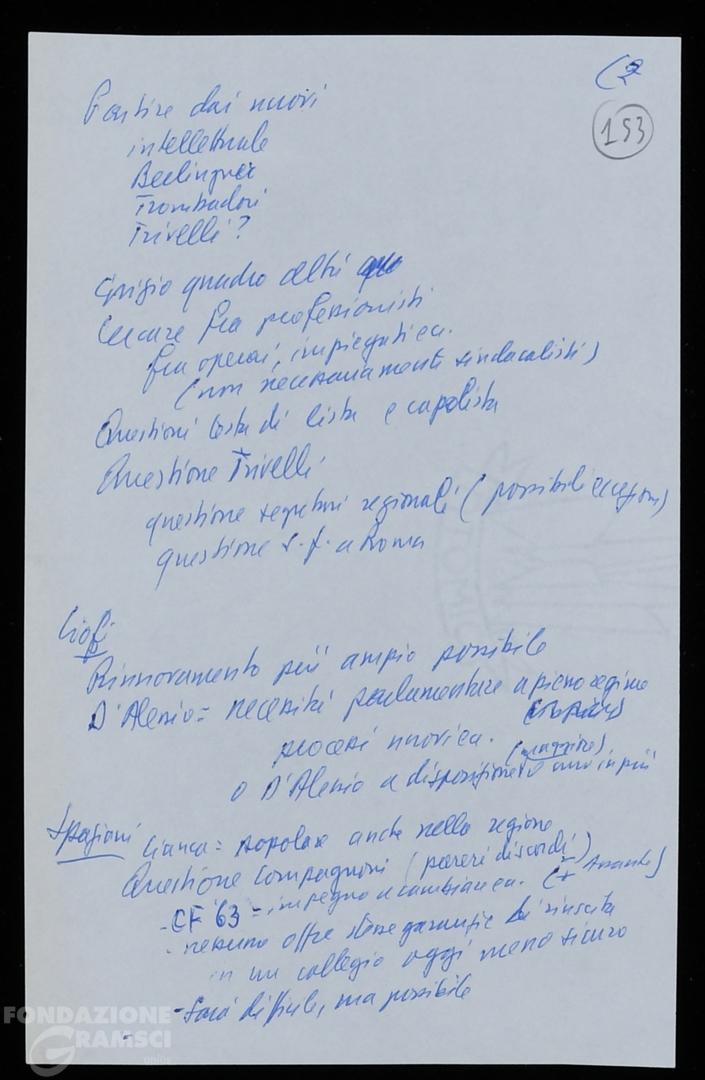 (2
153
Partire dai nuovi
intellettuale
Berlinguer
Trombadori
Trivelli?
Grigio quadro altri
Cercare fra professionisti
fra operai, impiegati ecc.
(non necessariamente sindacalisti)
Questioni testa di lista e capolista
Questione Trivelli
questione segretari regionali (possibili eccezioni)
questione s.f. a Roma
Ciofi
Rinnovamento più ampio possibile
D'Alessio = necessità parlamentare a pieno regime
processi nuovi ecc.
(maggiore)
o D'Alessio a disposizione o anno in più
Spaziani Cianca = popolare anche nella regione
Questione Compagnoni (pareri discordi)
- CF '63 = impegno a cambiare ecc.
- nessuno offre stesse garanzie di riuscita
in un collegio oggi meno sicuro
- sarà difficile, ma possibile
FONDAZIONE
GRAMSCI
onlus